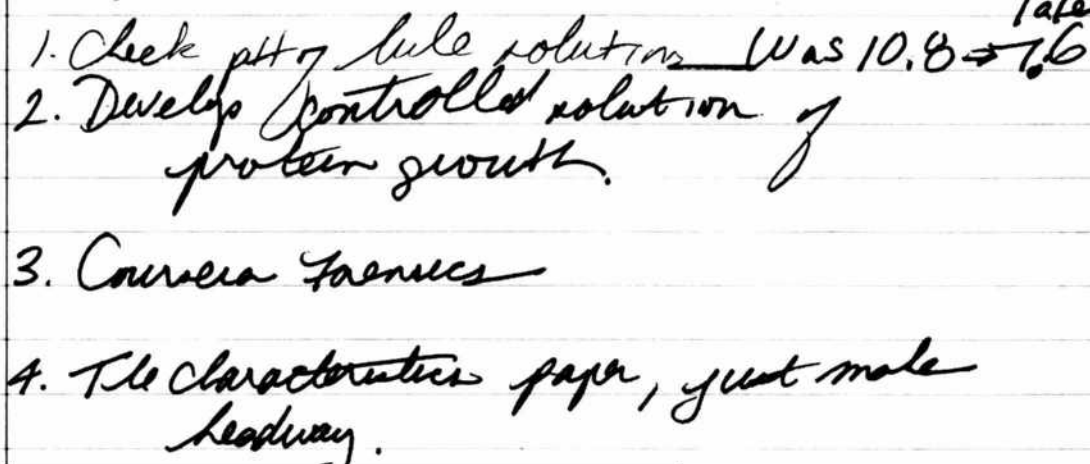 Later
1. Check pH of lule solution Was 10.8 → 7.6
2. Develop controlled solution of
protein growth.
3. Coursera Forensics
4. The characteristics paper, just make
headway.